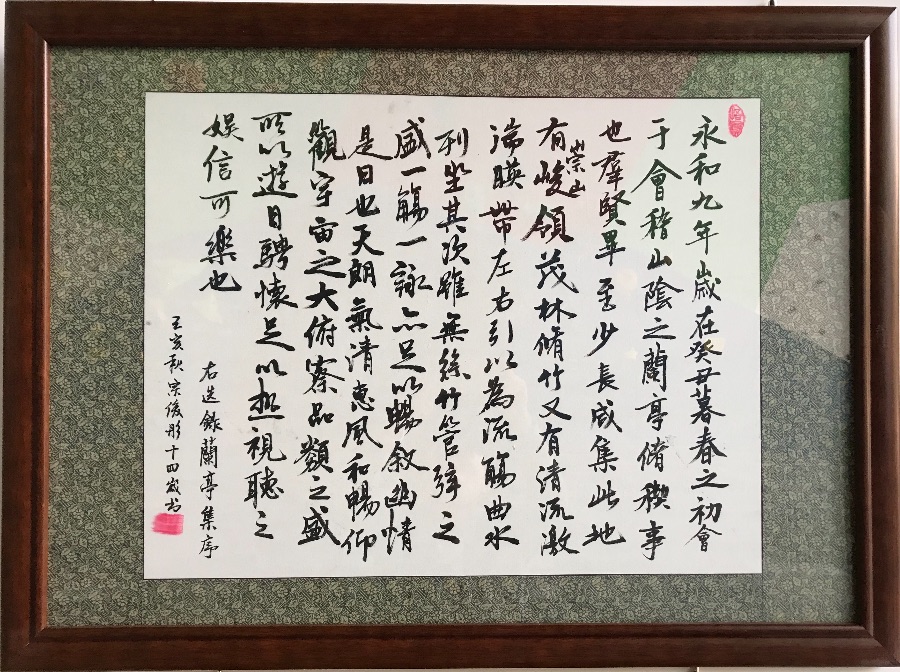 永和九年歲在癸丑暮春之初會
于會稽山陰之蘭亭脩稧事
也羣賢畢至少長咸集此地
有崇山峻領茂林脩竹又有清流激
湍暎帶左右引以為流觴曲水
列坐其次雖無絲竹管弦之
盛一觴一詠亦足以暢敘幽情
是日也天朗氣清惠風和暢仰
觀宇宙之大俯察品類之盛
所以遊目騁懷足以極視聽之
娛信可樂也
右选錄蘭亭集序
亥秋宗俊彤十四歲书